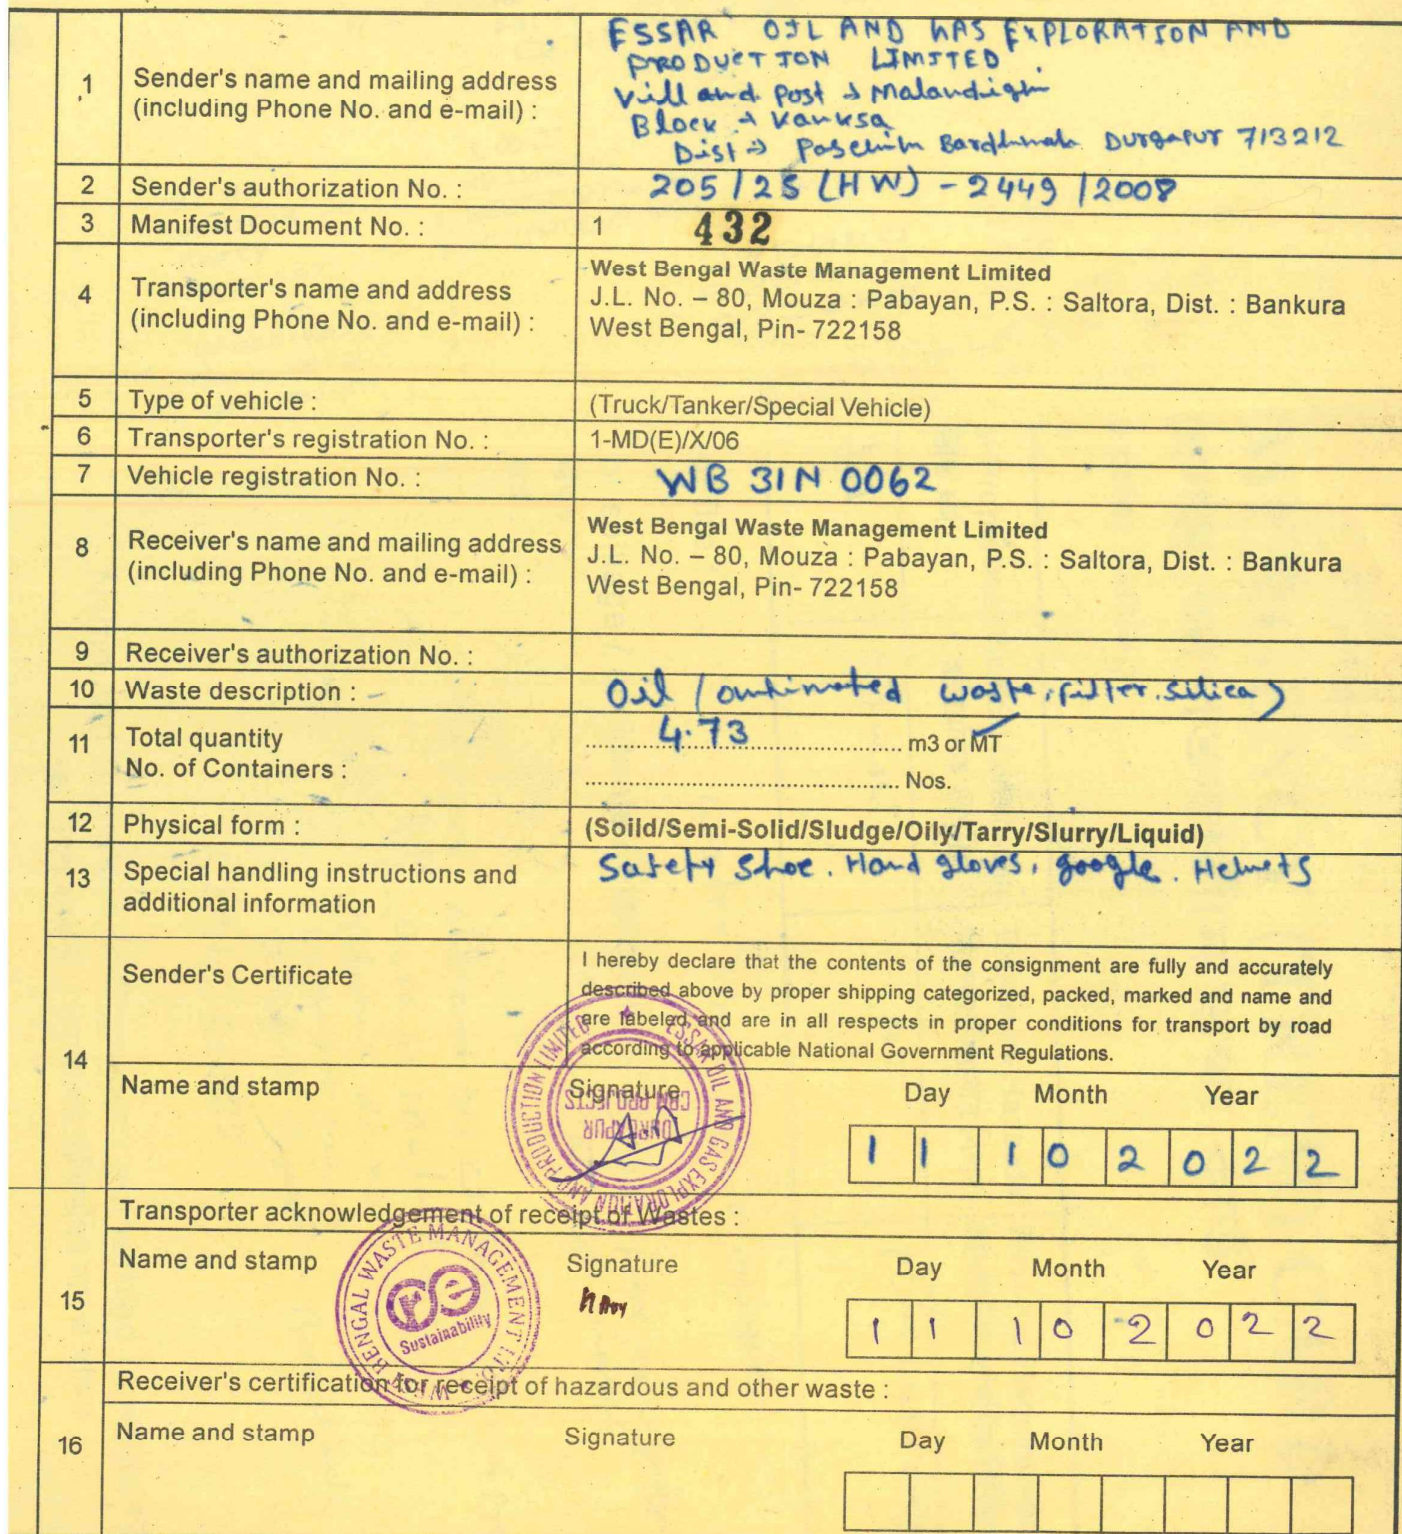 1
Sender's name and mailing address
(including Phone No. and e-mail) :
ESSAR OIL AND GAS EXPLORATION AND
PRODUCTION LIMITED
Vill and Post → Malandighi
Block → Kanksa
Dist → Paschim Bardhman Durgapur 713212
2 Sender's authorization No. : 205/2S (HW) - 2449/2008
3 Manifest Document No. : 1 432
4
Transporter's name and address
(including Phone No. and e-mail) :
West Bengal Waste Management Limited
J.L. No. – 80, Mouza : Pabayan, P.S. : Saltora, Dist. : Bankura
West Bengal, Pin- 722158
5 Type of vehicle : (Truck/Tanker/Special Vehicle)
6 Transporter's registration No. : 1-MD(E)/X/06
7 Vehicle registration No. : WB 31N 0062
8
Receiver's name and mailing address
(including Phone No. and e-mail) :
West Bengal Waste Management Limited
J.L. No. – 80, Mouza : Pabayan, P.S. : Saltora, Dist. : Bankura
West Bengal, Pin- 722158
9 Receiver's authorization No. :
10 Waste description : Oil ( waste, filter, silica)
11 Total quantity 4.73 m3 or MT
No. of Containers : Nos.
12 Physical form : (Soild/Semi-Solid/Sludge/Oily/Tarry/Slurry/Liquid)
13 Special handling instructions and
additional information
Safety Shoe. Hand gloves, google. Helmets
14
Sender's Certificate
I hereby declare that the contents of the consignment are fully and accurately
described above by proper shipping categorized, packed, marked and name and
are labeled and are in all respects in proper conditions for transport by road
according to applicable National Government Regulations.
Name and stamp Signature Day Month Year
ESSAR OIL AND GAS EXPLORATION AND PRODUCTION LIMITED
CBM PROJECTS
DURGAPUR
1 1 1 0 2 0 2 2
Transporter acknowledgement of receipt of Wastes :
15
Name and stamp Signature Day Month Year
WEST BENGAL WASTE MANAGEMENT LTD.
re
Sustainability
1 1 1 0 2 0 2 2
Receiver's certification for receipt of hazardous and other waste :
16
Name and stamp Signature Day Month Year